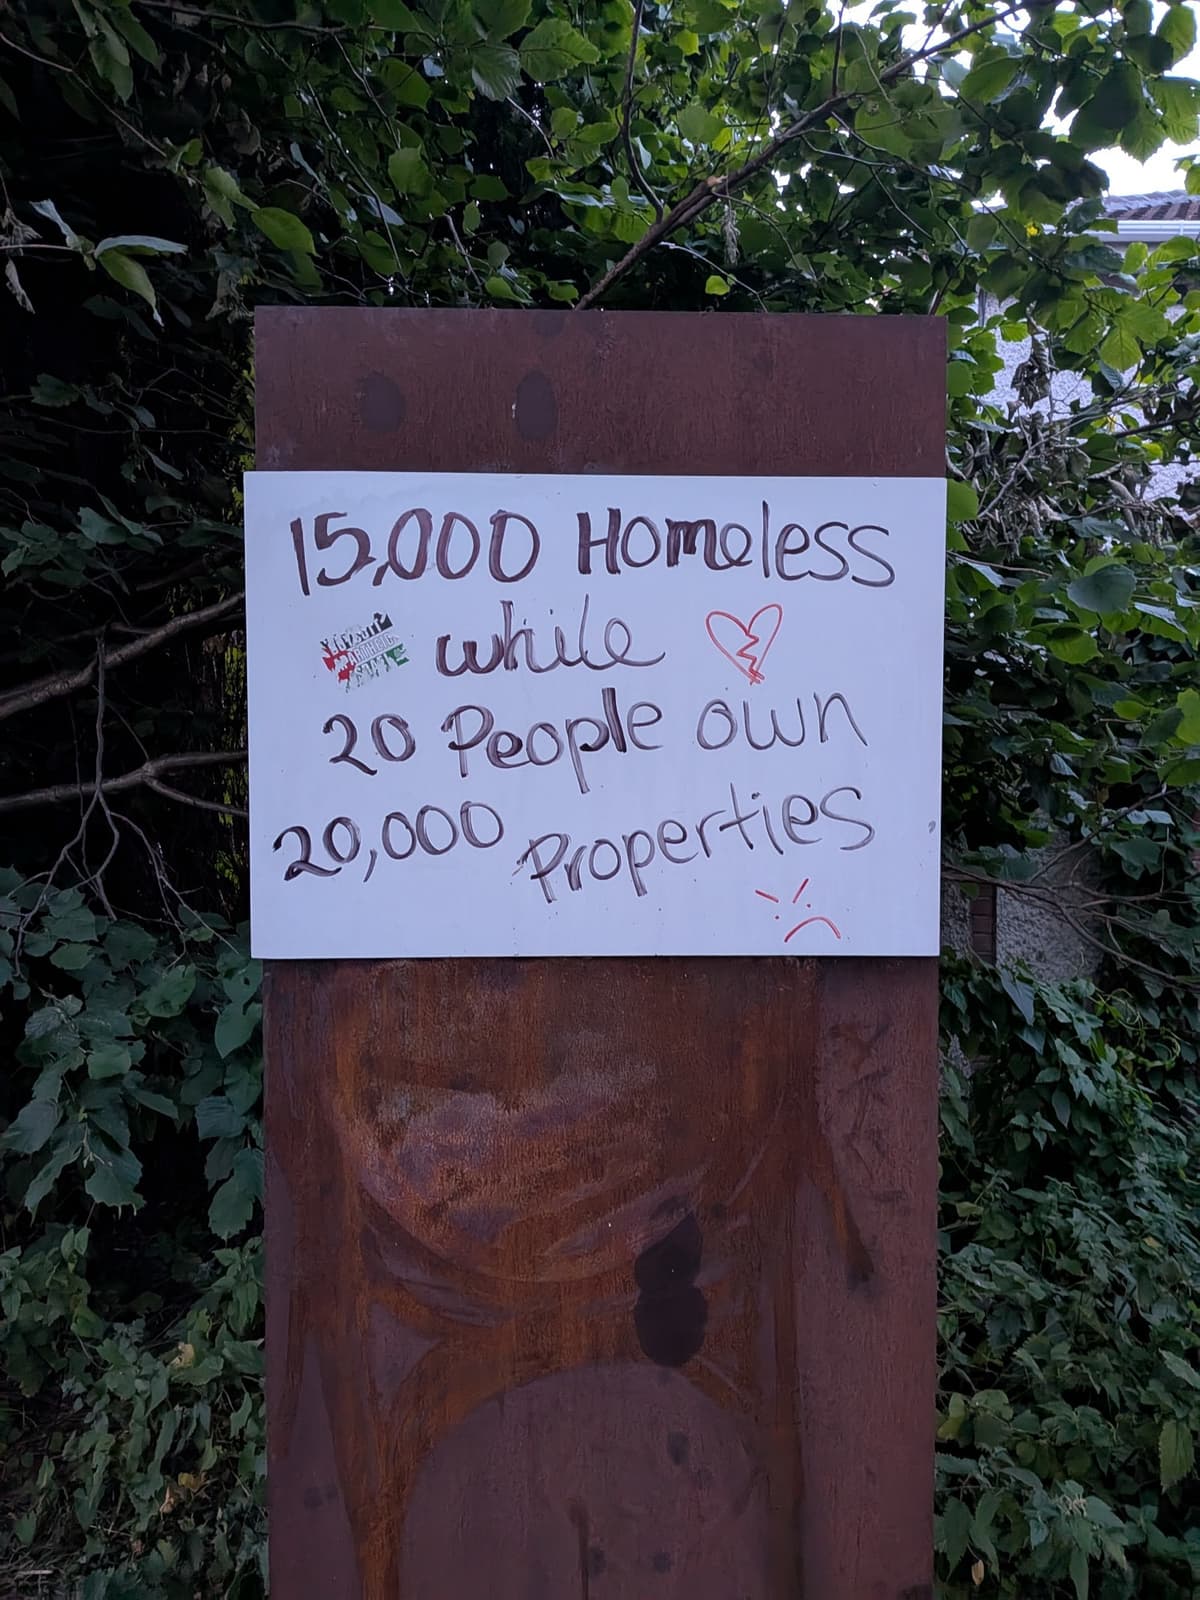 15,000 Homeless
while
20 People own
20,000 Properties
APARTHEID